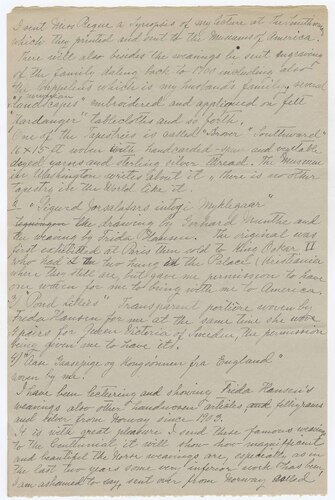 I sent Miss Pegue a Synopsis of my lecture at the
which they printed and sent to the Museums of America.
There will also besides the weavings be sent engravings
of the family dating back to 1700 including also
the which is my husband's family, several
"Landscapes" embroidered and appliqued on felt
"Hardanger" tablecloths and so forth.
One of the Tapestries is called "
16 x 15 ft woven with handcarded and vegetable
dyed yarns and sterling silver thread. The Museum
in Washington writes about it, there is no other
tapestry in the World like it.
2. "Sigurd Jorsalafars
the drawing by Gerhard Munthe and
the weaving by Frida Hansen. The original was
first exhibited at Paris then sold to King Oskar II
who had it hung in the Palace Christiania
where they still are, but gave me permission to have
one woven for me to bring with me to America.
3) Transparent portiere woven by
Frida Hansen for me at the same time she wove
for Queen Victoria of Sweden, the permission
being given me to have it.
4) og Kongesonner fra England"
woven by me.
I have been lecturing and showing Frida Hansen's
weavings also other handwoven articles and filligrams
and silver from Norway since
It is with great pleasure I send these famous weavings
to the Centennial, it will show how magnificent
and beautiful the Norse weavings are, especially as in
the last two years some very inferior work has been
I am ashamed to say sent over from Norway called